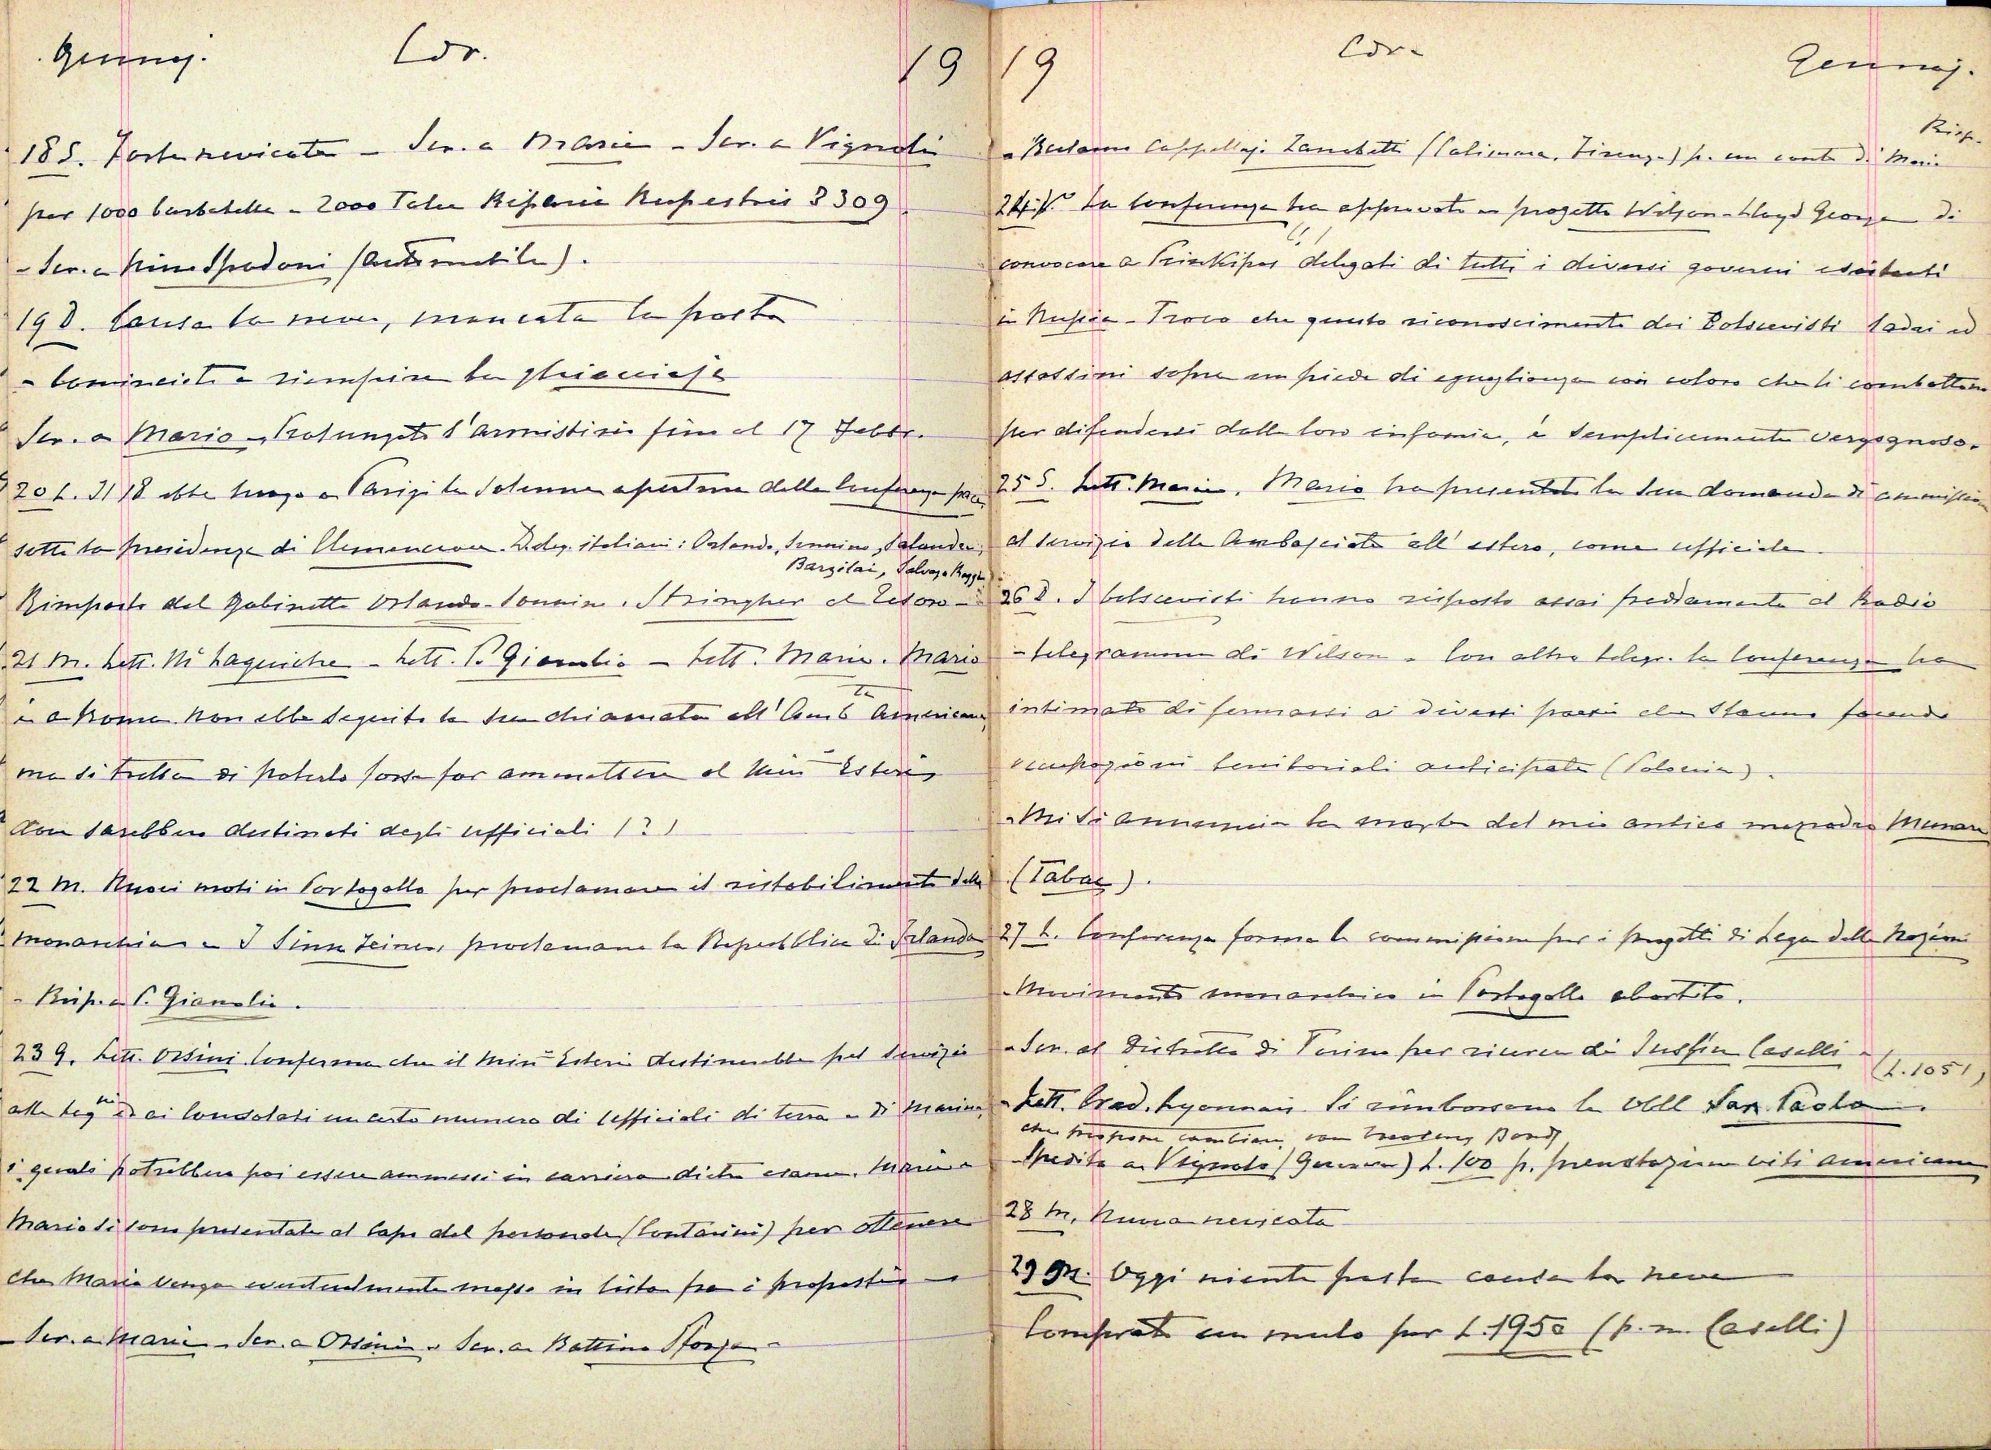 Gennaj. Cor. 19
18 S. Forte nevicata - Scr. a Maria - Scr. a Vignoli
per 1000 barbatelle - 2000 Talee Riparia Rupestris 3309.
- Scr. a Nino Spadoni (automobile).
19 D. Causa la neve, mancata la posta
- Cominciato a riempire la ghiacciaja
Scr. a Mario - Prolungato l'armistizio fino al 17 Febbr.
20 L. Il 18 ebbe luogo a Parigi la solenne apertura della Conferenza pace
sotto la presidenza di Clemenceau. Deleg. italiani: Orlando, Sonnino, Salandra,
Barzilai, Salvago Raggi
Rimpasto del gabinetto Orlando-Sonnino. Stringher al Tesoro -
21 M. Lett. - Lett. P. Gianolio - Lett. Maria. Mario
è a Roma. Non ebbe seguito la sua chiamata all'Amb.ta Americana,
ma si tratta di poterlo forse far ammettere al Min Esteri,
dove sarebbero destinati degli ufficiali (?)
22 M. Nuovi moti in Portogallo per proclamare il ristabilimento della
monarchia - I Sinn Feiners proclamano la Repubblica di Irlanda
- Risp. a P. Gianolio.
23 G. Lett. Orsini. Conferma che il Min Esteri destinerebbe pel servizio
alle Leg.ni ed ai Consolati un certo numero di ufficiali di terra e di Marina,
i quali potrebbero poi essere ammessi in carriera dietro esame. Maria e
Mario si sono presentati al Capo del personale (Contarini) per ottenere
che Mario venga eventualmente messo in lista fra i proposti -
- Scr. a Maria - Scr. a Orsini - Scr. a Battino Sforza -
19 Cor. Gennaj.
Risp.
- Cappellaj. Zanobetti (Calimara, Firenze) p. un conto di Maria
24 V. La Conferenza ha approvato un progetto Wilson-Lloyd George di
convocare a Prinkipos (!) delegati di tutti i diversi governi esistenti
in Russia - Trovo che questo riconoscimento dei Bolscevisti ladri ed
assassini sopra un piede di eguaglianza con coloro che li combattono
per difendersi dalle loro infamie, è semplicemente vergognoso.
25 S. Lett. Maria. Mario ha presentato la sua domanda di ammissione
al servizio delle Ambasciate all'estero, come ufficiale.
26 D. I bolscevisti hanno risposto assai freddamente al Radio
- telegramma di Wilson - Con altro telegr. la Conferenza ha
intimato di fermarsi ai diversi paesi che stanno facendo
occupazioni territoriali anticipate (Polonia).
- Mi si annunzia la morte del mio antico mezzadro Munari
(Tabac).
27 L. Conferenza forma le commissioni per i progetti di Lega delle Nazioni
- Movimento monarchico in Portogallo abortito.
- Scr. al Distretto di Torino per ricerca di Caselli -
(L. 1051)
- Lett. Cred. Lyonnais. Si rimborsano le Obbl San Paolo.
che propone cambiare con Treasury Bonds
- Spedito a Vignolo (Genova) L. 100 p. prenotazione viti americane
28 M. Nuova nevicata
29 M. Oggi niente posta causa la neve
Comprato un mulo per L. 1950 (p. m. Caselli)